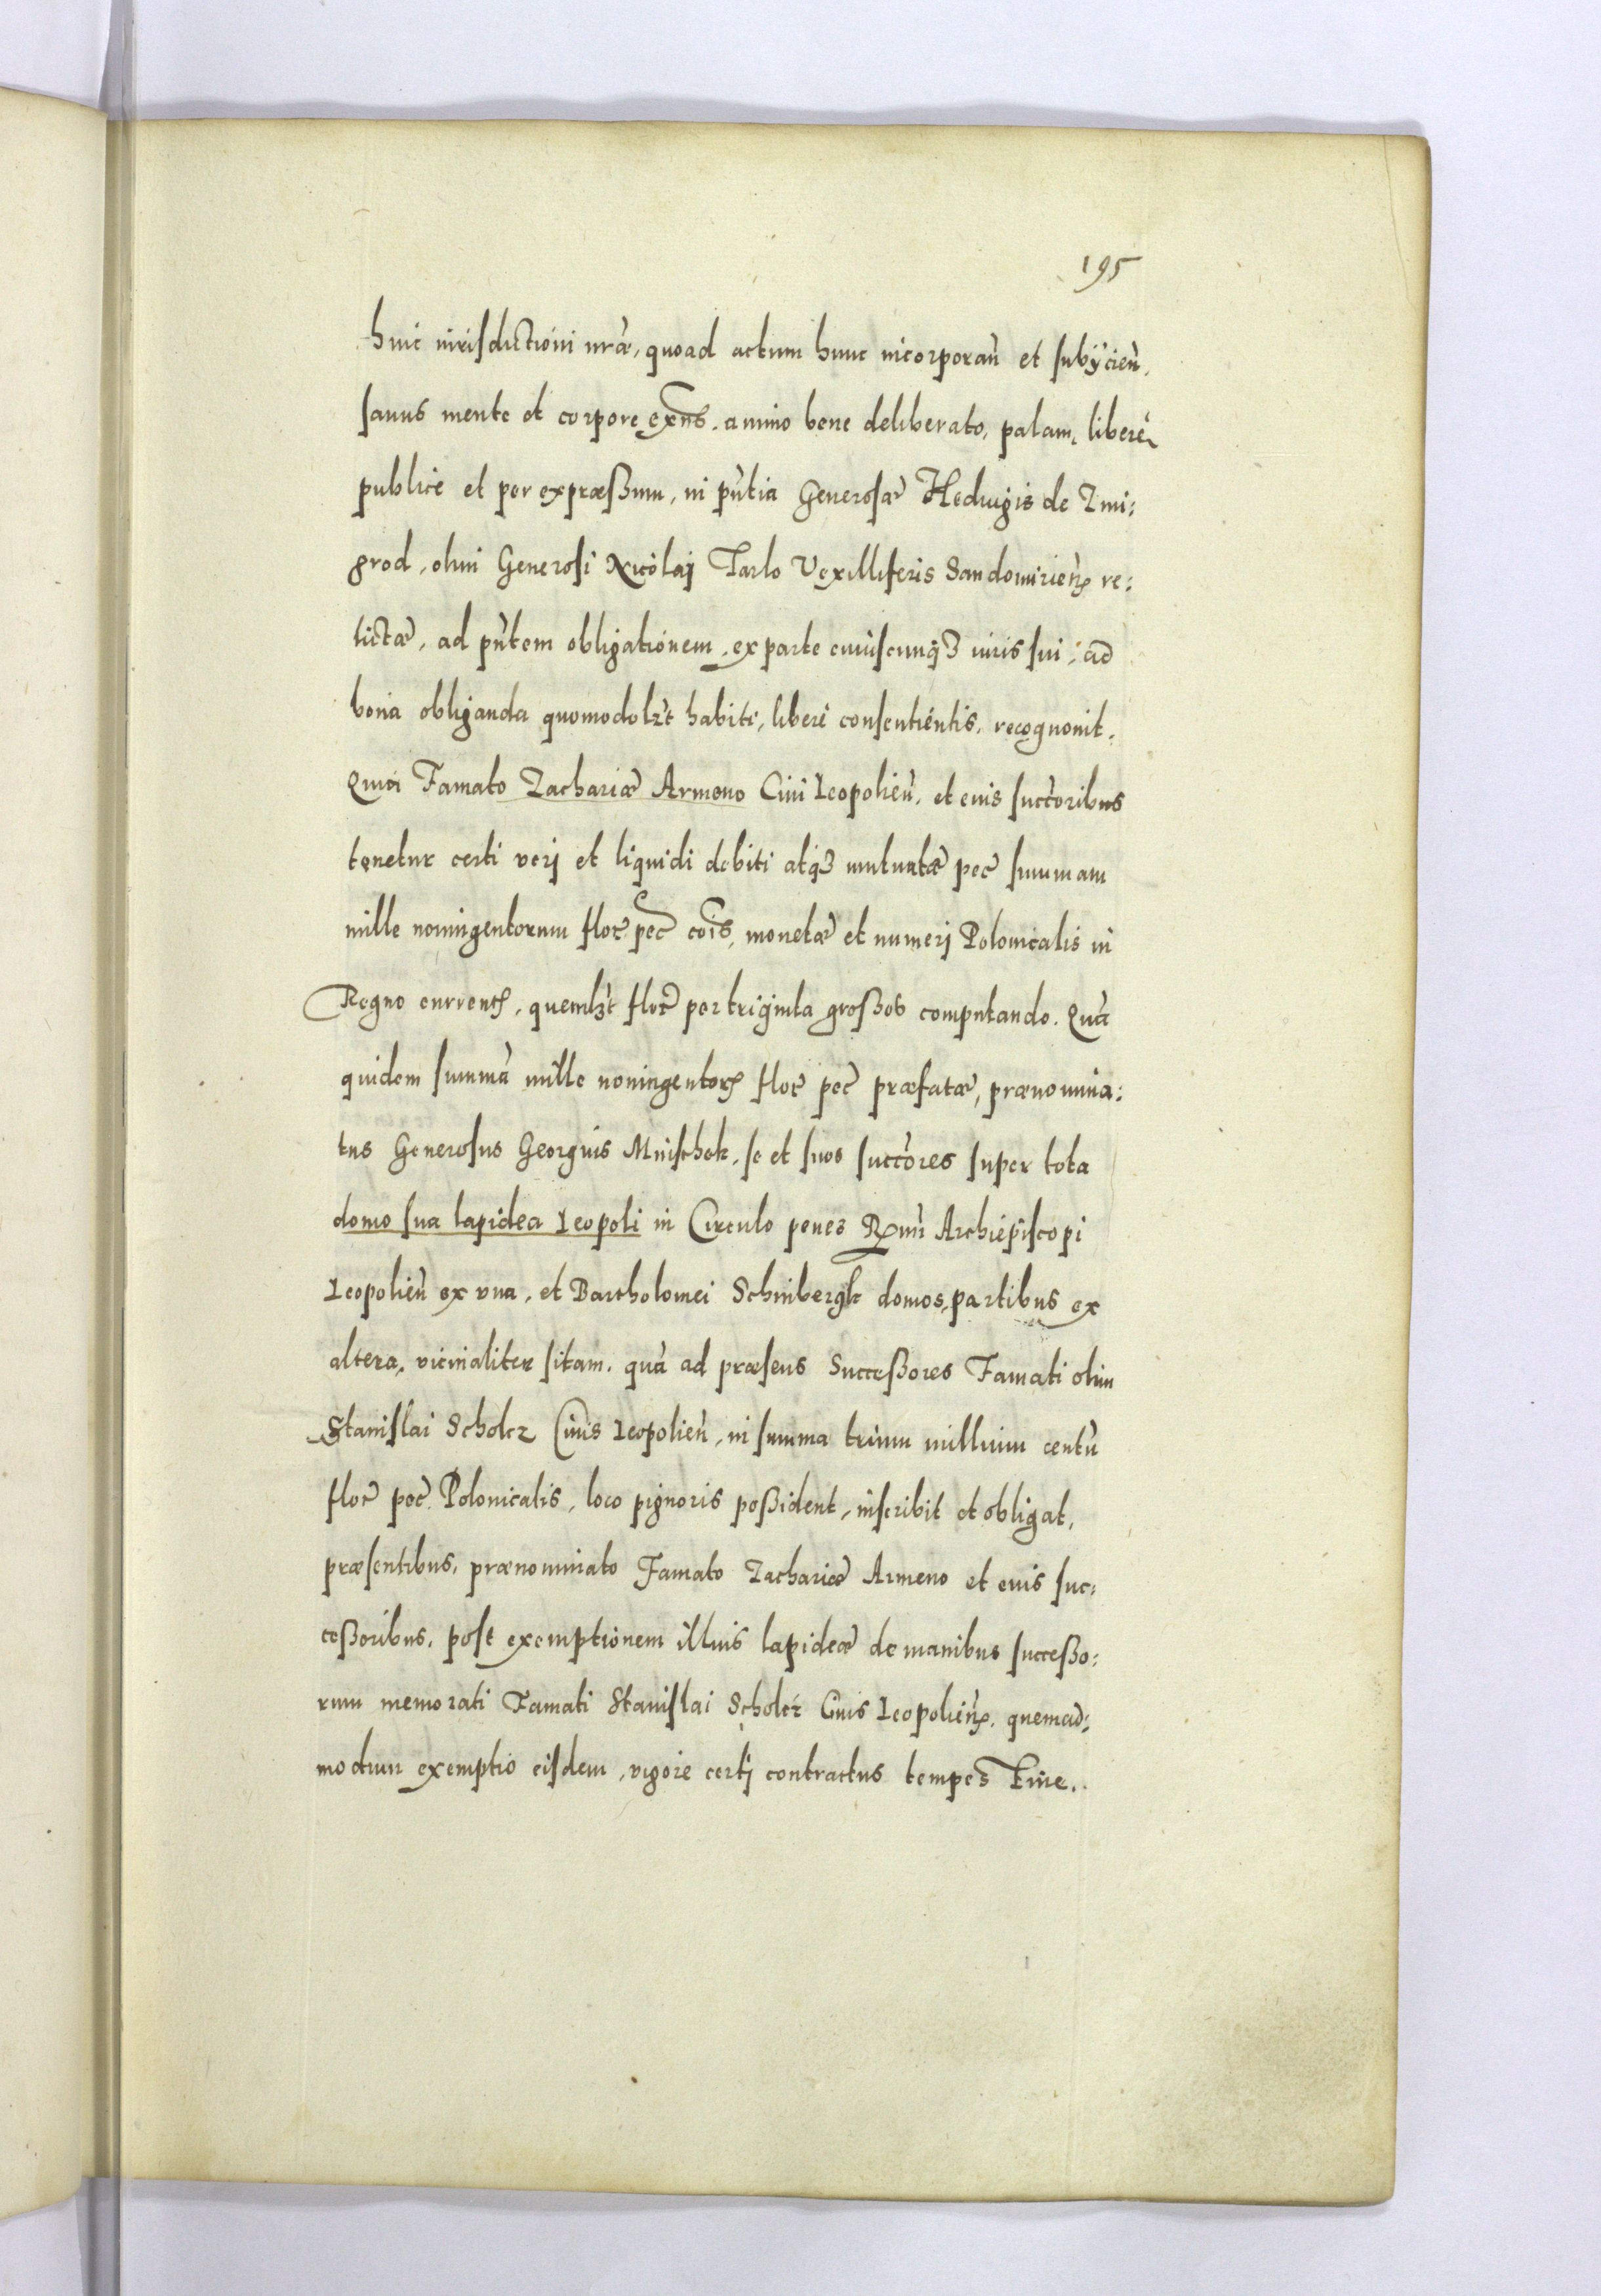 195
huic iurisdictioni nrae, quoad actum hunc incorporan̄ et subÿcien̄,
sanus mente et corpore exn̄s, animo bene deliberato, palam, liberè
publicè et per expraeßum, in pn̄tia Generosae Hedvigis de Zmi:
grod, olim Generosi Nicolaj Tarlo Vexilliferis Sandomirien̄ re:
lictae, ad pn̄tem obligationem, ex parte cuiuscunqꝫ iuris sui, ad
bona obliganda quomodolꝫt habiti, liberè consentientis, recognouit.
Quia Famato Zachariae Armeno Ciui Leopolien̄, et eius succoribus
tenetur certi verj et liquidi debiti atqꝫ mutuatae pec̄ summam
mille noningentorum flor̄ pec̄ cois, monetae et numerj Polonicalis in
Regno currentꝭ, quemlꝫt flor̄ per triginta großos computando. Quā
quidem summā mille noningentorꝭ flor̄ pec̄ praefatae, praenomina:
tus Generosus Georgius Mnischek, se et suos succores super tota
domo sua lapidea Leopoli in Circulo penes Rmi Archiepiscopi
Leopolien̄ ex vna, et Bartholomei Schinbergk domos, partibus ex
altera, vicinaliter sitam, quā ad praesens Succeßores Famati olim
Stanislai Scholcz Ciuis Leopolien̄, in summa trium millium centū
flor̄ pec̄ Polonicalis, loco pignoris poßident, inscribit et obligat,
praesentibus, praenominato Famato Zachariae Armeno et eius suc:
ceßoribus, post exemptionem illius lapideae de manibus succeßo:
rum memorati Famati Stanislai Scholcz Ciuis Leopolien̄, quemad:
modum exemptio eisdem, vigore certj contractus